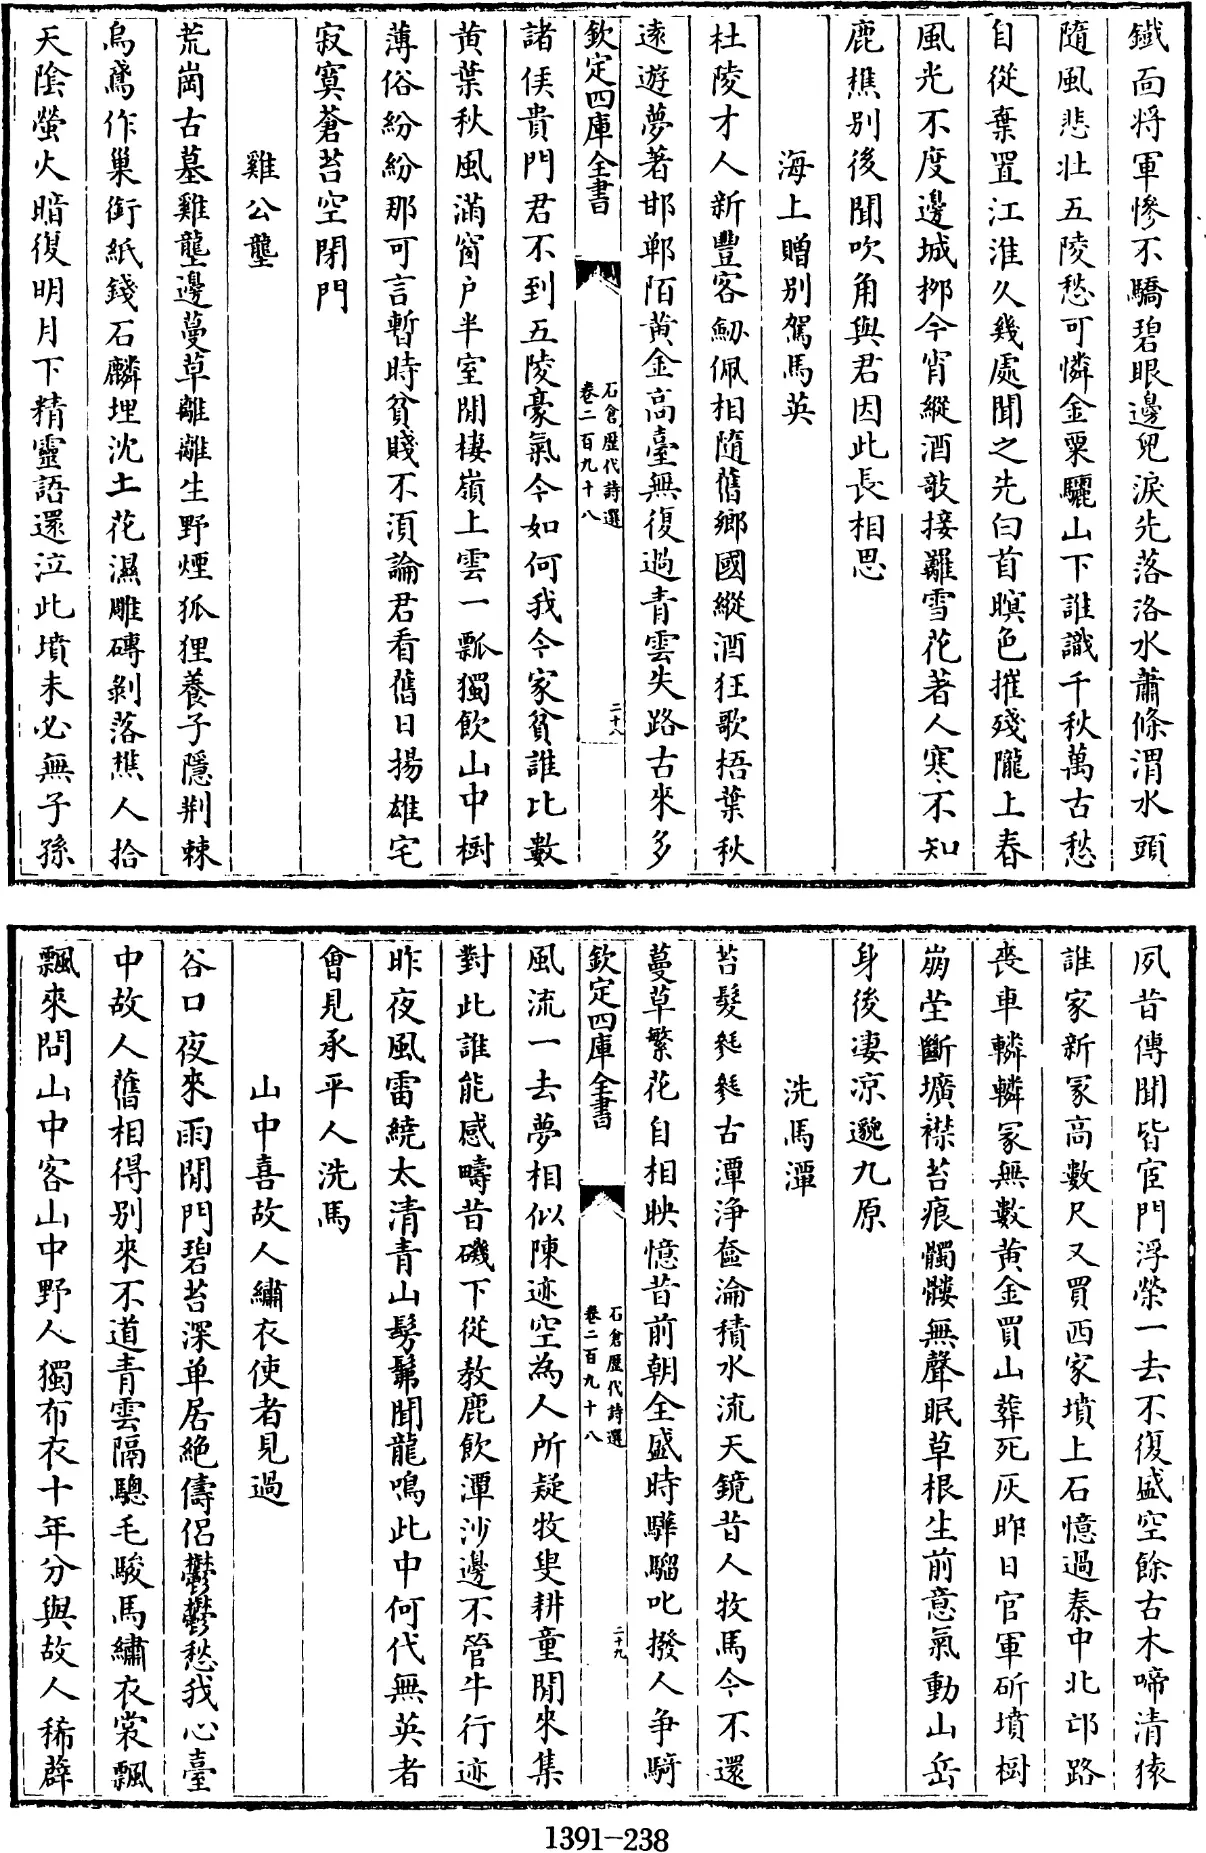 鐵面將軍慘不驕碧眼邊兒淚先落洛水蕭條渭水頭
隨風悲壯五陵愁可憐金粟驪山下誰識千秋萬古愁
自從棄置江淮久幾處聞之先白首暝色摧殘隴上春
風光不度邊城柳今宵縱酒敲接䍦雪花著人寒不知
鹿樵別後聞吹角與君因此長相思
海上贈別駕馬英
杜陵才人新豐客劒佩相隨舊鄉國縱酒狂歌梧葉秋
遠遊夢著邯鄲陌黃金高臺無復過青雲失路古來多
欽定四庫全書
石倉歷代詩選
卷二百九十八
二十八
諸侯貴門君不到五陵豪氣今如何我今家貧誰比數
黃葉秋風滿窗戶半室閒棲嶺上雲一瓢獨飲山中樹
薄俗紛紛那可言暫時貧賤不須論君看舊日揚雄宅
寂寞蒼苔空閉門
雞公壟
荒崗古墓雞壟邊蔓草離離生野煙狐狸養子隱荆棘
烏鳶作巢銜紙錢石麟埋沈土花濕雕磚剝落樵人拾
天陰螢火暗復明月下精靈語還泣此墳未必無子孫
夙昔傳聞皆宦門浮榮一去不復盛空餘古木啼清猿
誰家新冢高數尺又買西家墳上石憶過秦中北邙路
喪車轔轔冢無數黃金買山葬死灰昨日官軍斫墳樹
崩塋斷壙襍苔痕髑髏無聲眠草根生前意氣動山岳
身後凄凉邈九原
洗馬潭
苔髮毿毿古潭淨奩淪積水流天鏡昔人牧馬今不還
蔓草繁花自相映憶昔前朝全盛時驊騮叱撥人爭騎
欽定四庫全書
石倉歷代詩選
卷二百九十八
二十九
風流一去夢相似陳迹空為人所疑牧叟耕童閒來集
對此誰能感疇昔磯下從教鹿飲潭沙邊不管牛行迹
昨夜風雷繞太清青山髣髴聞龍鳴此中何代無英者
會見承平人洗馬
山中喜故人繡衣使者見過
谷口夜來雨閒門碧苔深单居絶儔侶鬱鬱愁我心臺
中故人舊相得別來不道青雲隔驄毛駿馬繡衣裳飄
飄來問山中客山中野人獨布衣十年分與故人稀辟
1391-238